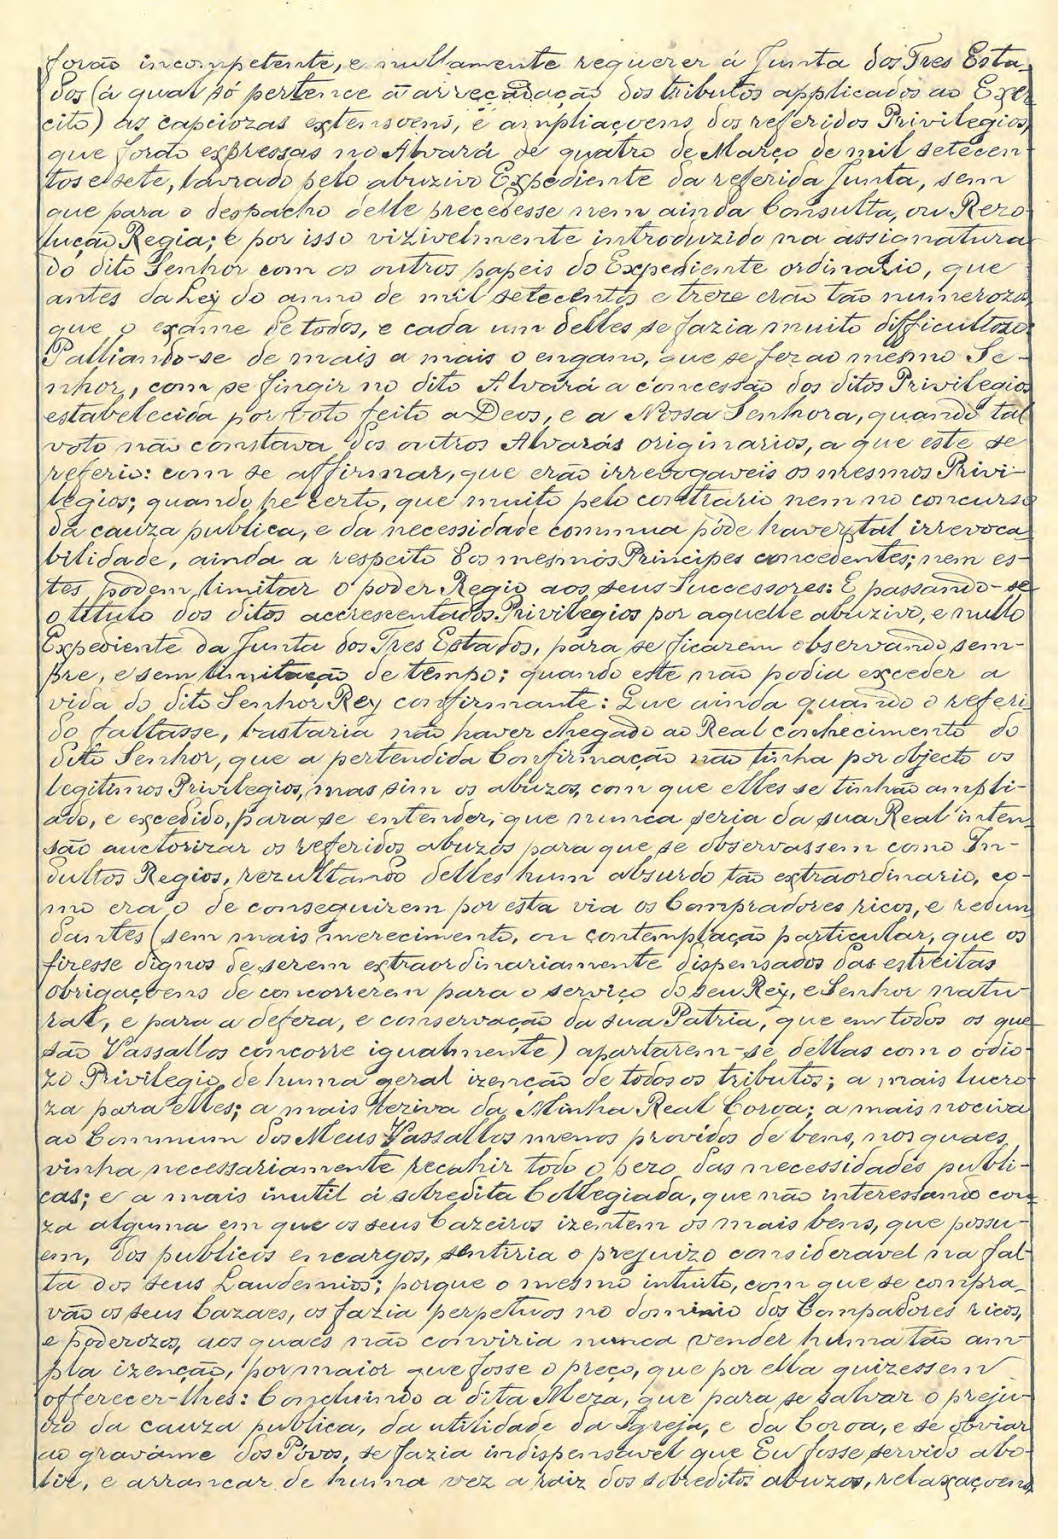 forão incompetente, e nullamente requerer á Junta dos Tres Esta-
dos (á qual só pertence á arrecadação dos tributos applicados ao Exer-
cito) as capciozas extensoens, e ampliaçoens dos referidos Privilegios,
que forão expressas no Alvará de quatro de Março de mil setecen-
tos e sete, lavrado pelo abuzivo Expediente da referida Junta, sem
que para o despacho delle precedesse nem ainda Consulta, ou Rezo-
lução Regia; e por isso vizivelmente introduzido na assignatura
do dito Senhor com os outros papeis do Expediente ordinario, que
antes da Ley do anno de mil setecentos e treze erão tão numerozos,
que o exame de todos, e cada um delles se fazia muito difficultozo:
Palliando-se de mais a mais o engano, que se fez ao mesmo Se-
nhor, com se fingir no dito Alvará a concessão dos ditos Privilegios
estabelecida por voto feito a Deos, e a Nossa Senhora, quando tal
voto não constava dos outros Alvarás originarios, a que este se
referio: com se affirmar, que erão irrevogaveis os mesmos Privi-
legios; quando he certo, que muito pelo contrario nem no concurso
da cauza publica, e da necessidade commua póde haver tal irrevoca-
bilidade, ainda a respeito dos mesmos Principes concedentes; nem es-
tes podem limitar o poder Regio aos seus Successores: E passando-se
o titulo dos ditos accrescentados Privilegios por aquelle abuzivo, e nullo
Expediente da Junta dos Tres Estados, para se ficarem observando sem-
pre, e sem limitação de tempo; quando este não podia exceder a
vida do dito Senhor Rey confirmante: Que ainda quando o referi-
do faltasse, bastaria não haver chegado ao Real conhecimento do
dito Senhor, que a pertendida Confirmação não tinha por objecto os
legitimos Privilegios, mas sim os abuzos, com que elles se tinhão ampli-
ado, e excedido, para se entender, que nunca seria da sua Real inten-
são auctorizar os referidos abuzos para que se observassem como In-
dultos Regios, rezultando delles hum absurdo tão extraordinario, co-
mo era o de conseguirem por esta via os Compradores ricos, e redun-
dantes (sem mais merecimento, ou contemplação particular, que os
fizesse dignos de serem extraordinariamente dispensados das estreitas
obrigaçoens de concorrerem para o serviço do seu Rey, e Senhor natu-
ral, e para a defeza, e conservação da sua Patria, que em todos os que
são Vassallos concorre igualmente) apartarem-se dellas com o odio-
zo Privilegio de huma geral izenção de todos os tributos; a mais lucro-
za para elles; a mais leziva da Minha Real Coroa; a mais nociva
ao Commum dos Meus Vassallos menos providos de bens, nos quaes
vinha necessariamente recahir todo o pezo das necessidades publi-
cas; e a mais inutil á sobredita Collegiada, que não interessando cou-
za alguma em que os seus Cazeiros izentem os mais bens, que possu-
em, dos publicos encargos, sentiria o prejuizo consideravel na fal-
ta dos seus Laudemios; porque o mesmo intuito, com que se compra-
vão os seus Cazaes, os fazia perpetuos no dominio dos Compadores ricos,
e poderozos, aos quaes não conviria nunca vender huma tão am-
pla izenção, por maior que fosse o preço, que por ella quizessem
offerecer-lhes: Concluindo a dita Meza, que para se salvar o preju-
izo da cauza publica, da utilidade da Igreja, e da Coroa, e se obviar
ao gravâme dos Povos, se fazia indispensavel que Eu fosse servido abo-
lir, e arrancar de huma vez a raiz dos sobreditos abuzos, relaxaçoens,